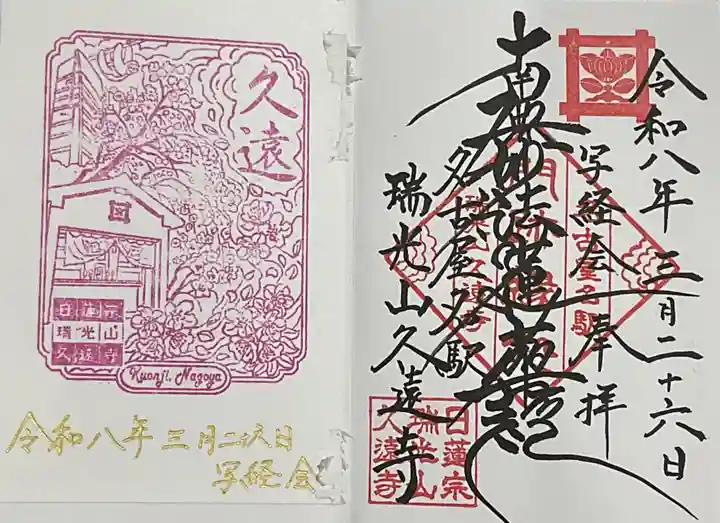 久遠
日蓮宗
瑞光山
久遠寺
Kuonji, Nagoya
令和八年三月二六日
写経会
令和八年三月二十六日
写経会 奉拝
南無妙法蓮華経
名古屋名駅
瑞光山久遠寺
日蓮宗
瑞光山
久遠寺